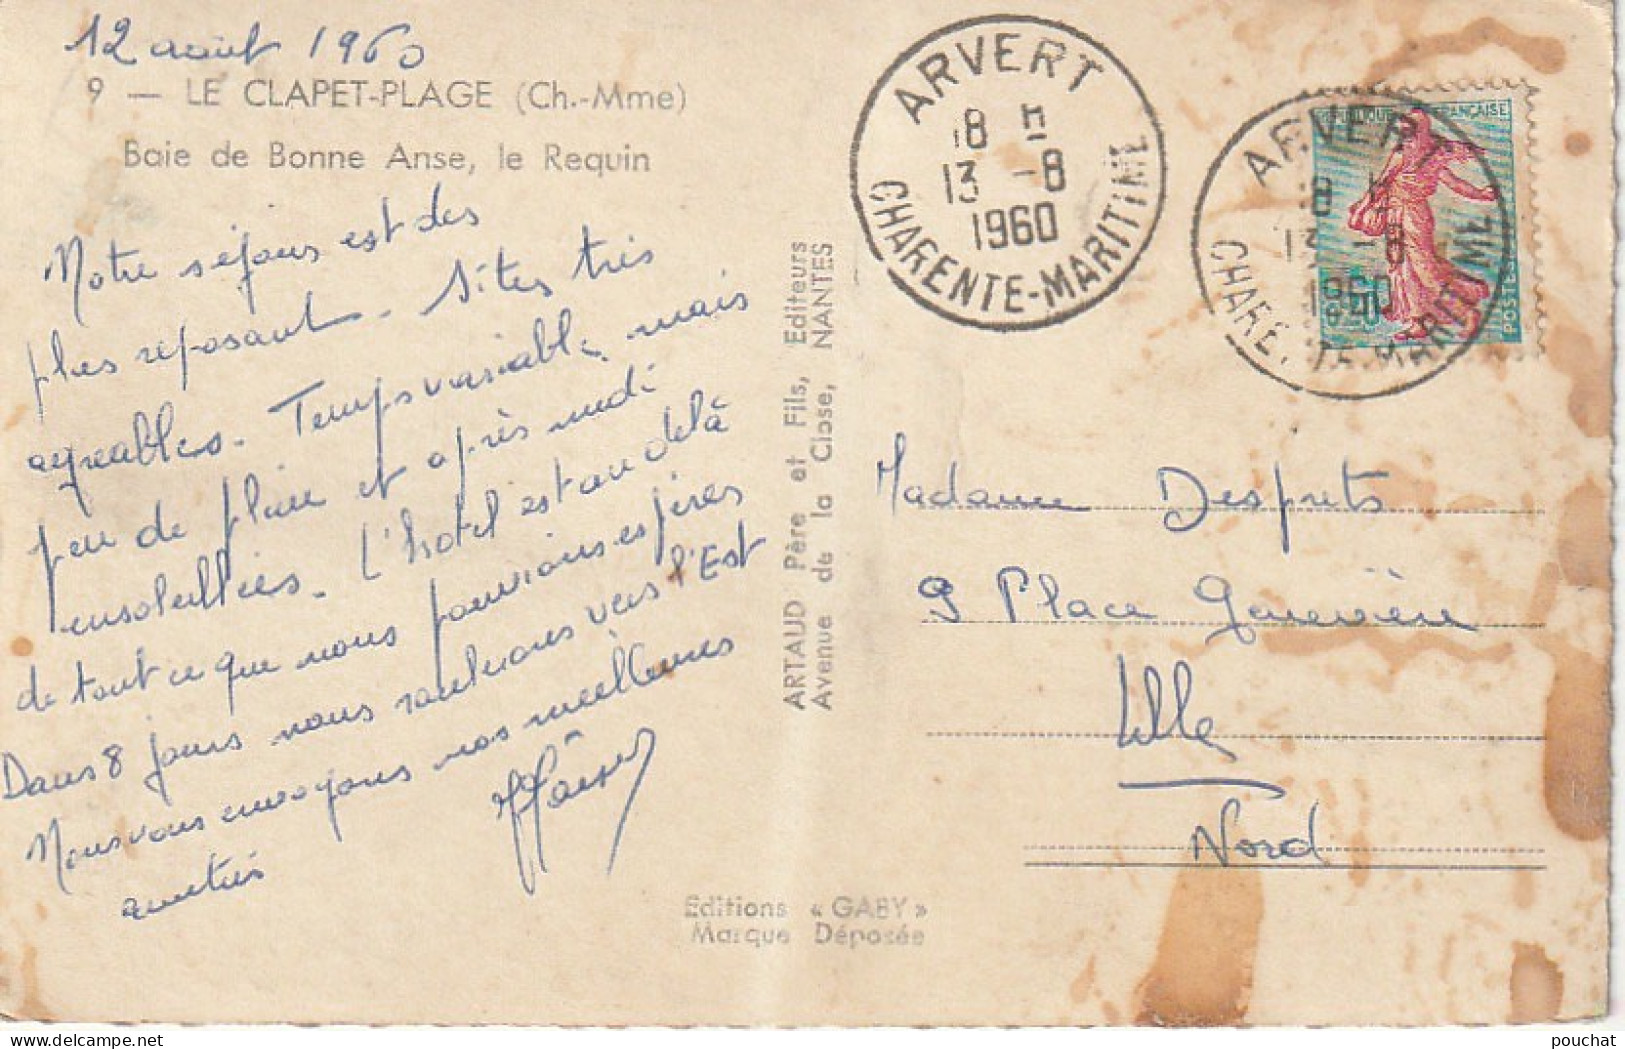 12 août 1960
9 — LE CLAPET-PLAGE (Ch.-Mme)
Baie de Bonne Anse, le Requin
Notre séjour est des
plus reposant. Sites très
agréables. Temps variable, mais
peu de pluie et après midi
ensoleillées. L'hôtel est au delà
de tout ce que nous pouvions espérer
Dans 8 jours nous roulerons vers l'Est
Nous vous envoyons nos meilleures
amitiés
ARTAUD Père et Fils, Editeurs
Avenue de la Close, NANTES
Editions « GABY »
Marque Déposée
ARVERT
18 H
13 -8
1960
CHARENTE-MARITIME
ARVERT
18 H
13 -8
1960
CHARENTE-MARITIME
REPUBLIQUE FRANÇAISE
POSTES
Madame Desprets
9 Place Geneviève
Lille
Nord
pouchat